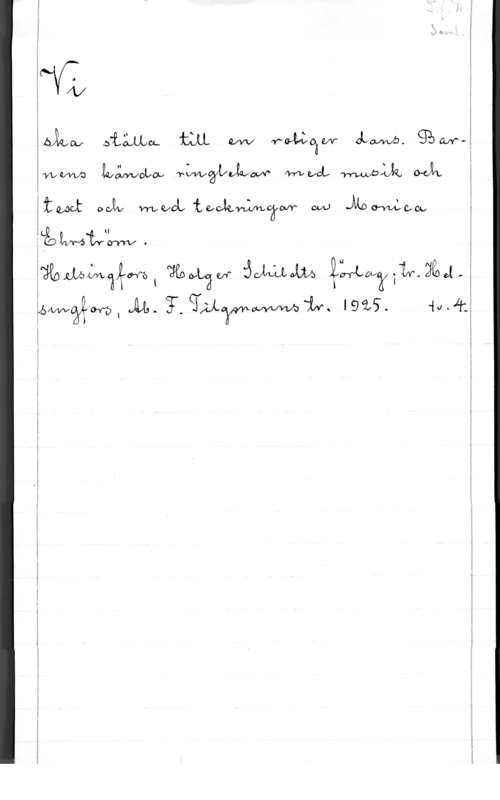 Vi
ska ställa till en roliger dans. Bar-
nens kända ringlekar med musik och
text och med teckningar av Monica
Ehrström.
Helsingfors, Holger Schildts förlag; tr. Hel-
singfors, Ab. F. Tilgmanns tr. 1925. 4: